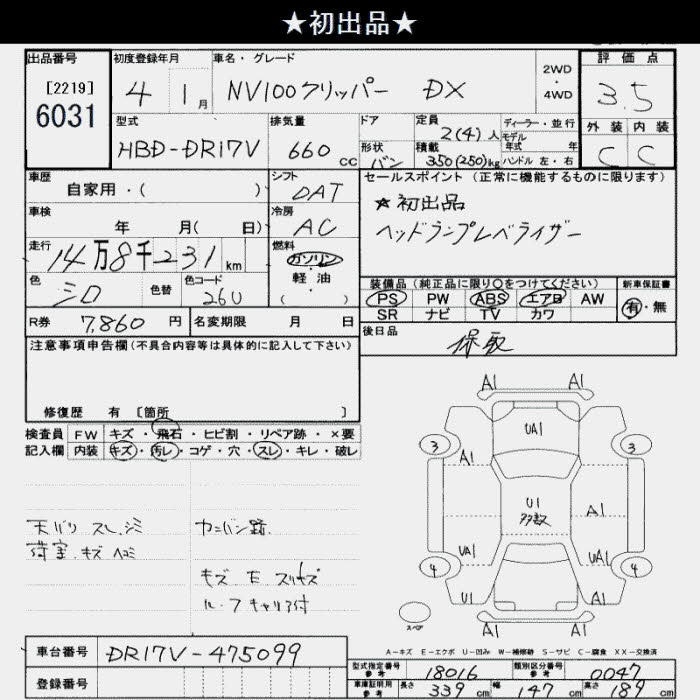 ★初出品★
出品番号
[2219]
6031
初度登録年月
4 1月
車名・グレード
NV100クリッパー DX
2WD
・
4WD
評価点
3.5
外装 内装
C C
型式
HBD-DR17V
排気量
660 cc
ドア
形状
バン
定員
2(4)人
積載
350(250)kg
ディーラー・並行
モデル
年式 年
ハンドル 左・右
車歴
自家用・( )
シフト
DAT
車検
年 月( 日)
冷房
AC
走行
14万8千231km
燃料
ガソリン
・
軽油
( )
色
シロ
色替
色コード
26U
R券 7,860 円
名変期限 月 日
セールスポイント(正常に機能するものに限ります)
★初出品
ヘッドランプレベライザー
装備品(純正品に限り○をつけてください)
PS PW ABS エアB AW
SR ナビ TV カワ
新車保証書
有・無
後日品
保取
注意事項申告欄(不具合内容等は具体的に記入して下さい)
修復歴 有 [箇所 ]
検査員
記入欄
FW キズ・飛石・ヒビ割・リペア跡・×要
内装 キズ・汚レ・コゲ・穴・スレ・キレ・破レ
天バリ スレ、シミ
荷室、キズ ヘコミ
カンバン跡、
キズ E スリキズ
ル-フキャリア付
A1 A1
3 UA1 3
A1
U1
多数
A1
UA1 UA1
4 4
A1 A1
スペア
A-キズ E-エクボ U-凹み W-補修跡 S-サビ C-腐食 XX-交換済
車台番号 DR17V-475099
登録番号
型式指定番号
参考
18016
類別区分番号
参考
0047
車庫証明用
参考
長さ 339cm 幅 147cm 高さ 189cm